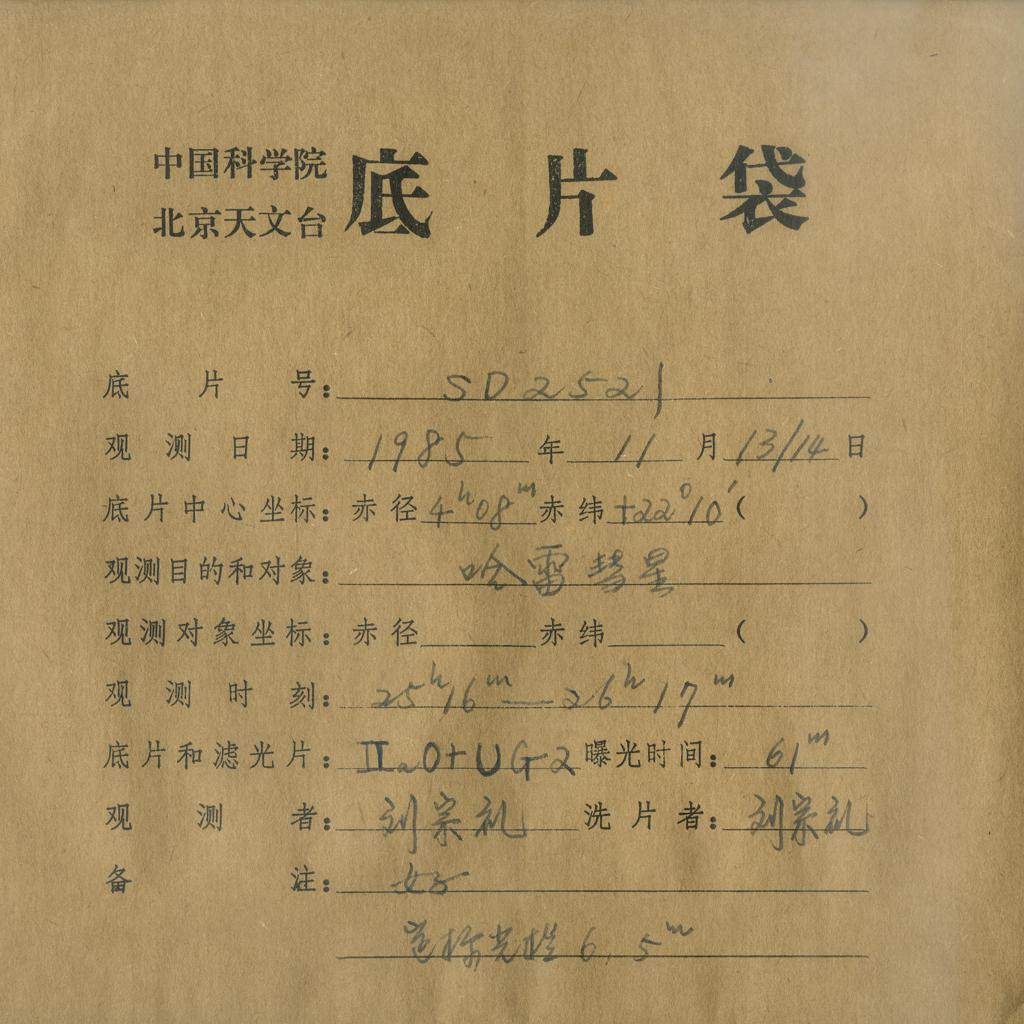 中国科学院
北京天文台
底片袋
底片号：SD2521
观测日期：1985年11月13/14日
底片中心坐标：赤径4h08m赤纬+22°10′（ ）
观测目的和对象：哈雷彗星
观测对象坐标：赤径 赤纬 （ ）
观测时刻：25h16m—26h17m
底片和滤光片：ⅡaO+UG2 曝光时间：61m
观测者：刘宗礼 洗片者：刘宗礼
备注：好
6.5m